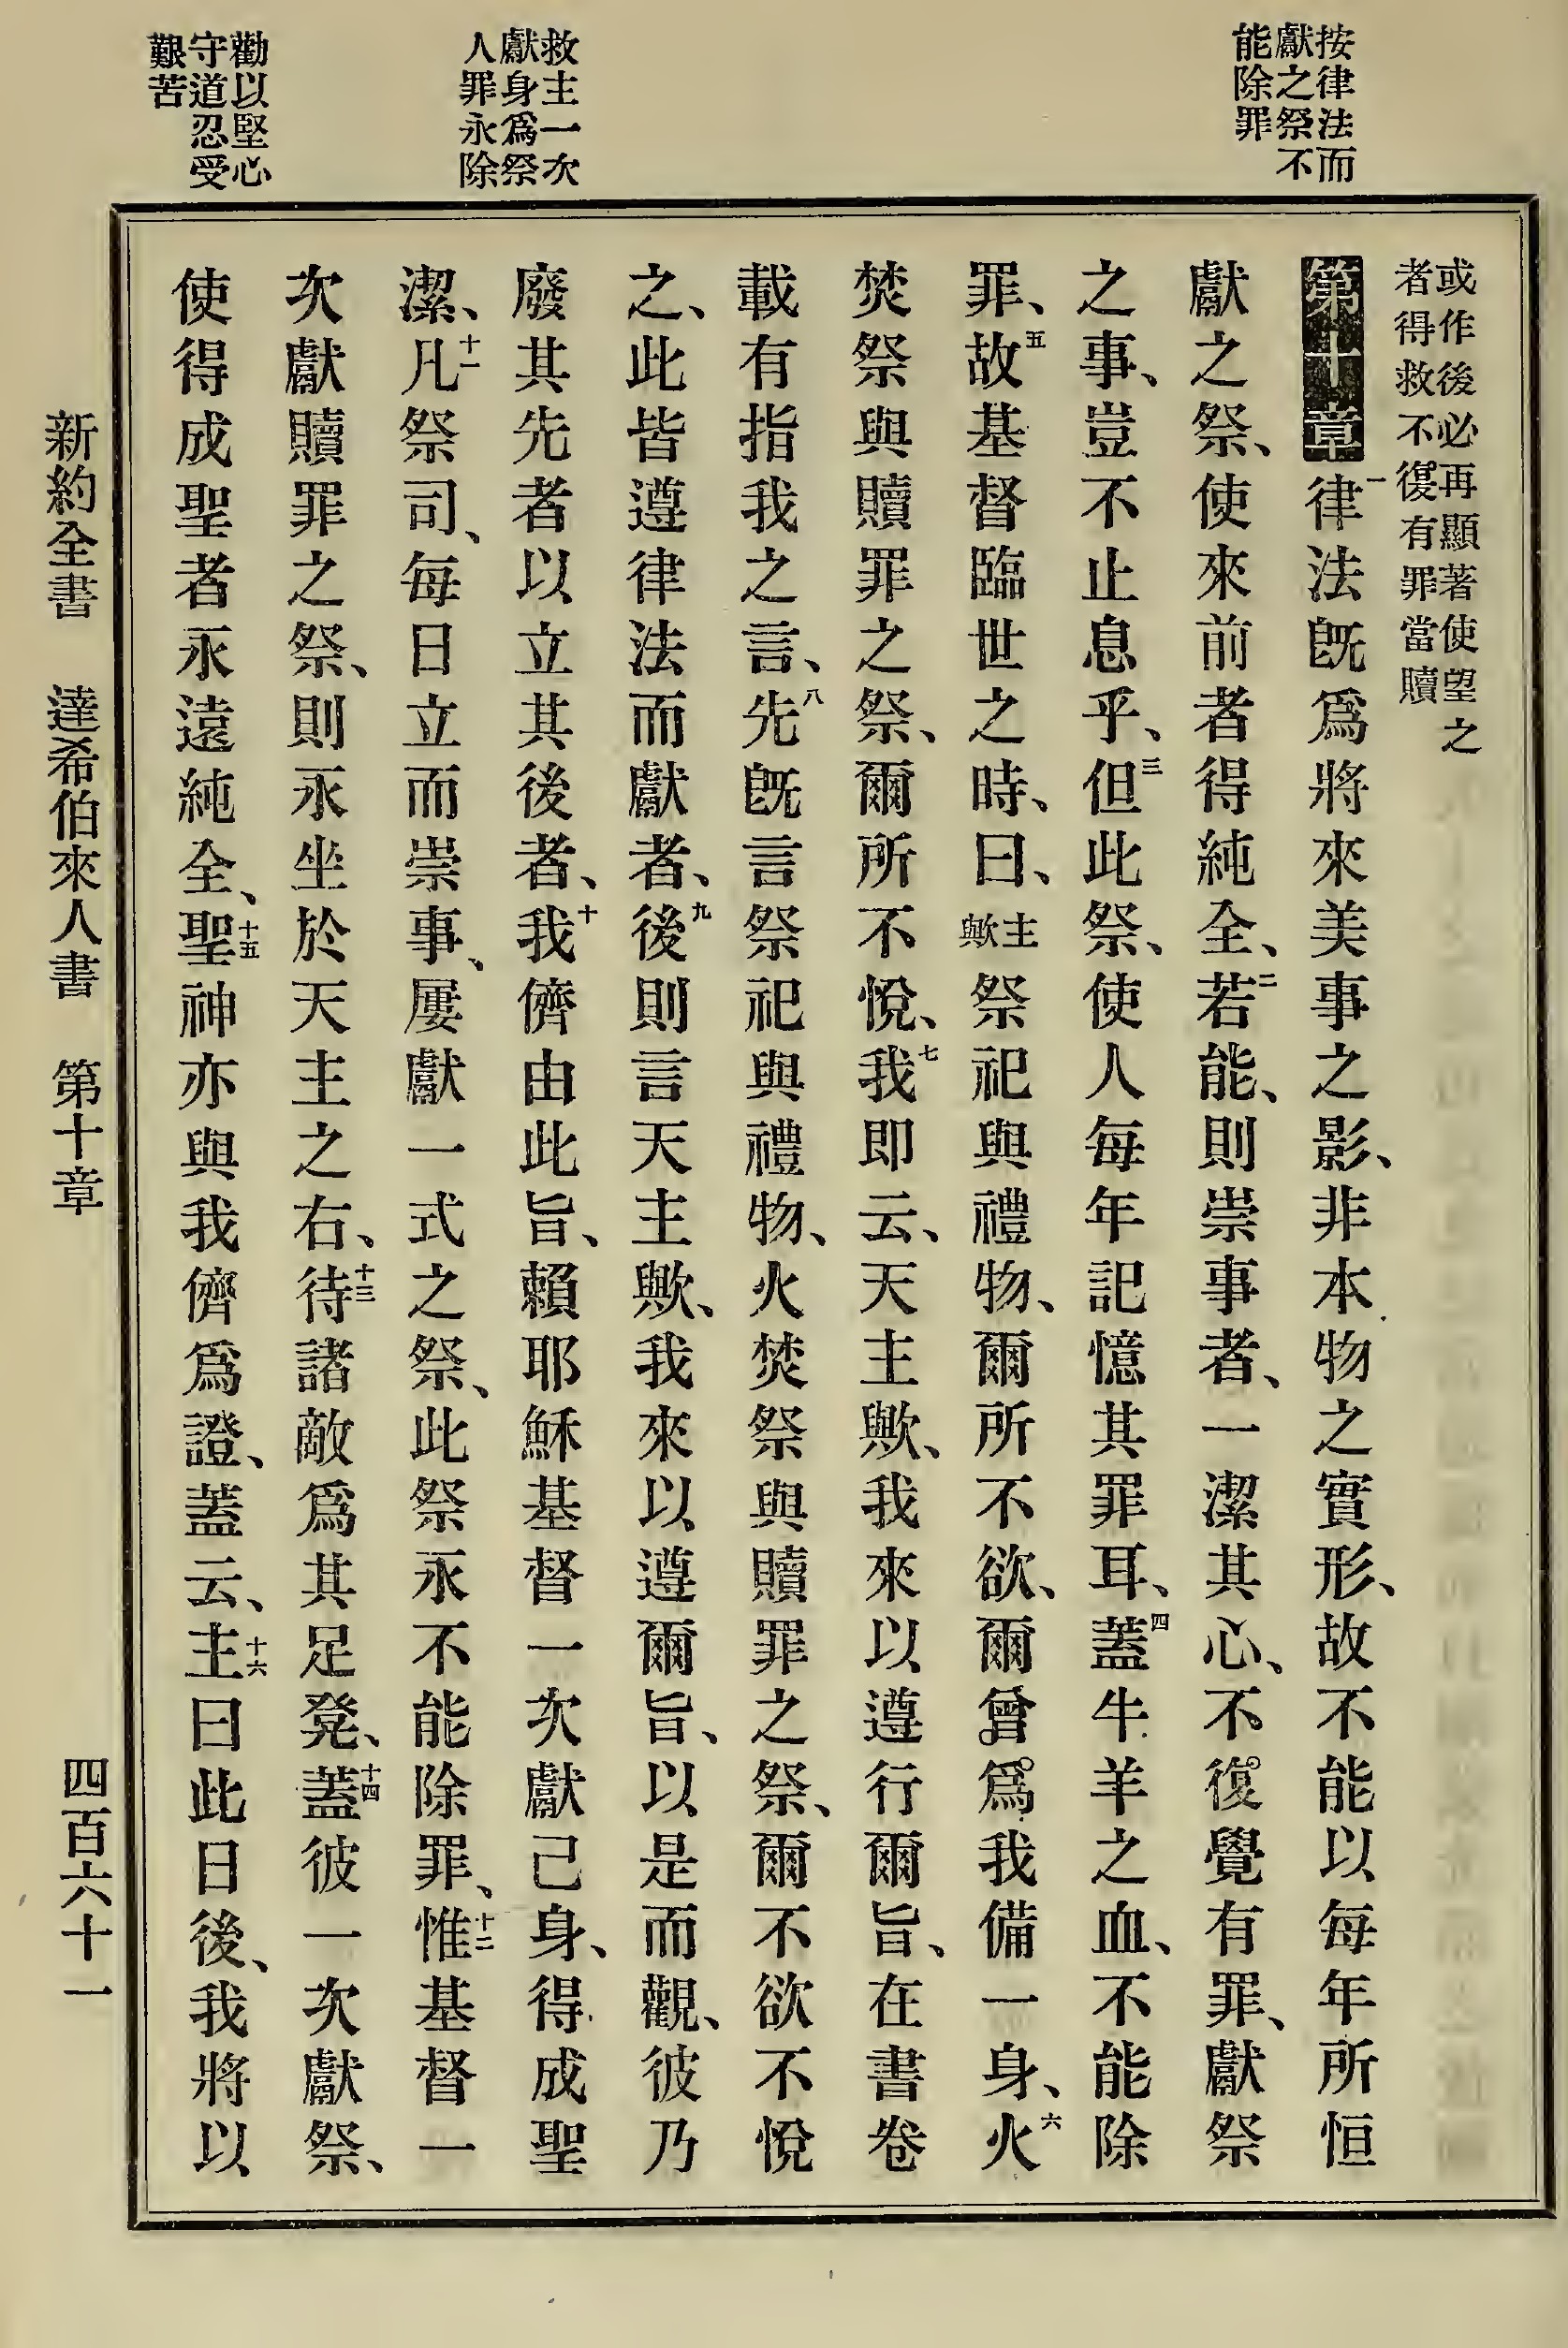 按律法而
獻之祭不
能除罪
救主一次
獻身爲祭
人罪永除
勸以堅心
守道忍受
艱苦
或作後必再顯著使望之
者得救不復有罪當贖
第十章一律法旣爲將來美事之影、非本物之實形、故不能以每年所恒
獻之祭、使來前者得純全、二若能、則崇事者、一潔其心、不復覺有罪、獻祭
之事、豈不止息乎、三但此祭、使人每年記憶其罪耳、四蓋牛羊之血、不能除
罪、五故基督臨世之時、曰、主歟祭祀與禮物、爾所不欲、爾曾爲我備一身、六火
焚祭與贖罪之祭、爾所不悅、七我即云、天主歟、我來以遵行爾旨、在書卷
載有指我之言、八先旣言祭祀與禮物、火焚祭與贖罪之祭、爾不欲不悅
之、此皆遵律法而獻者、九後則言天主歟、我來以遵爾旨、以是而觀、彼乃
廢其先者以立其後者、十我儕由此旨、賴耶穌基督一次獻己身、得成聖
潔、十一凡祭司、每日立而崇事、屢獻一式之祭、此祭永不能除罪、十二惟基督一
次獻贖罪之祭、則永坐於天主之右、十三待諸敵爲其足凳、十四蓋彼一次獻祭、
使得成聖者永遠純全、十五聖神亦與我儕爲證、蓋云、十六主曰此日後、我將以
新約全書 達希伯來人書 第十章 四百六十一